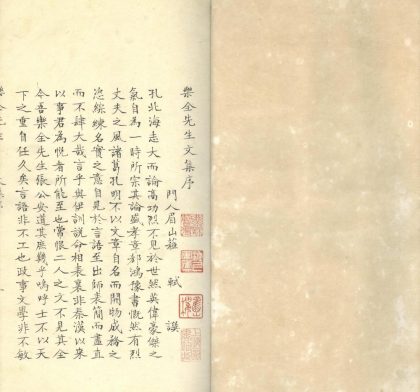 樂全先生文集序
門人眉山蘇 軾 譔
孔北海志大而論高功烈不見於世然英偉豪傑之
氣自為一時所宗其論盛孝章郗鴻豫書慨然有烈
丈夫之風諸葛孔明不以文章自名而開物成務之
姿綜練名實之意自見於言語至出師表簡而盡直
而不肆大哉言乎與伊訓說命相表裏非秦漢以來
以事君為悅者所能至也嘗恨二人之文不見其全
今吾樂全先生張公安道其庶幾乎嗚呼士不以天
下之重自任久矣言語非不工也政事文學非不敏